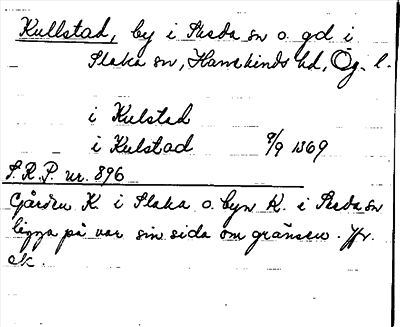 Kullstad, by i Skeda sn o. gd i
Slaka sn, Hanekinds hd, Ög. l.
i Kulstad
i Kulstad 9/9 1369
S.R.P. nr. 896
Gården K. i Slaka o. byn K. i Skeda sn
ligga på var sin sida om gränsen. Jfr.
ek.